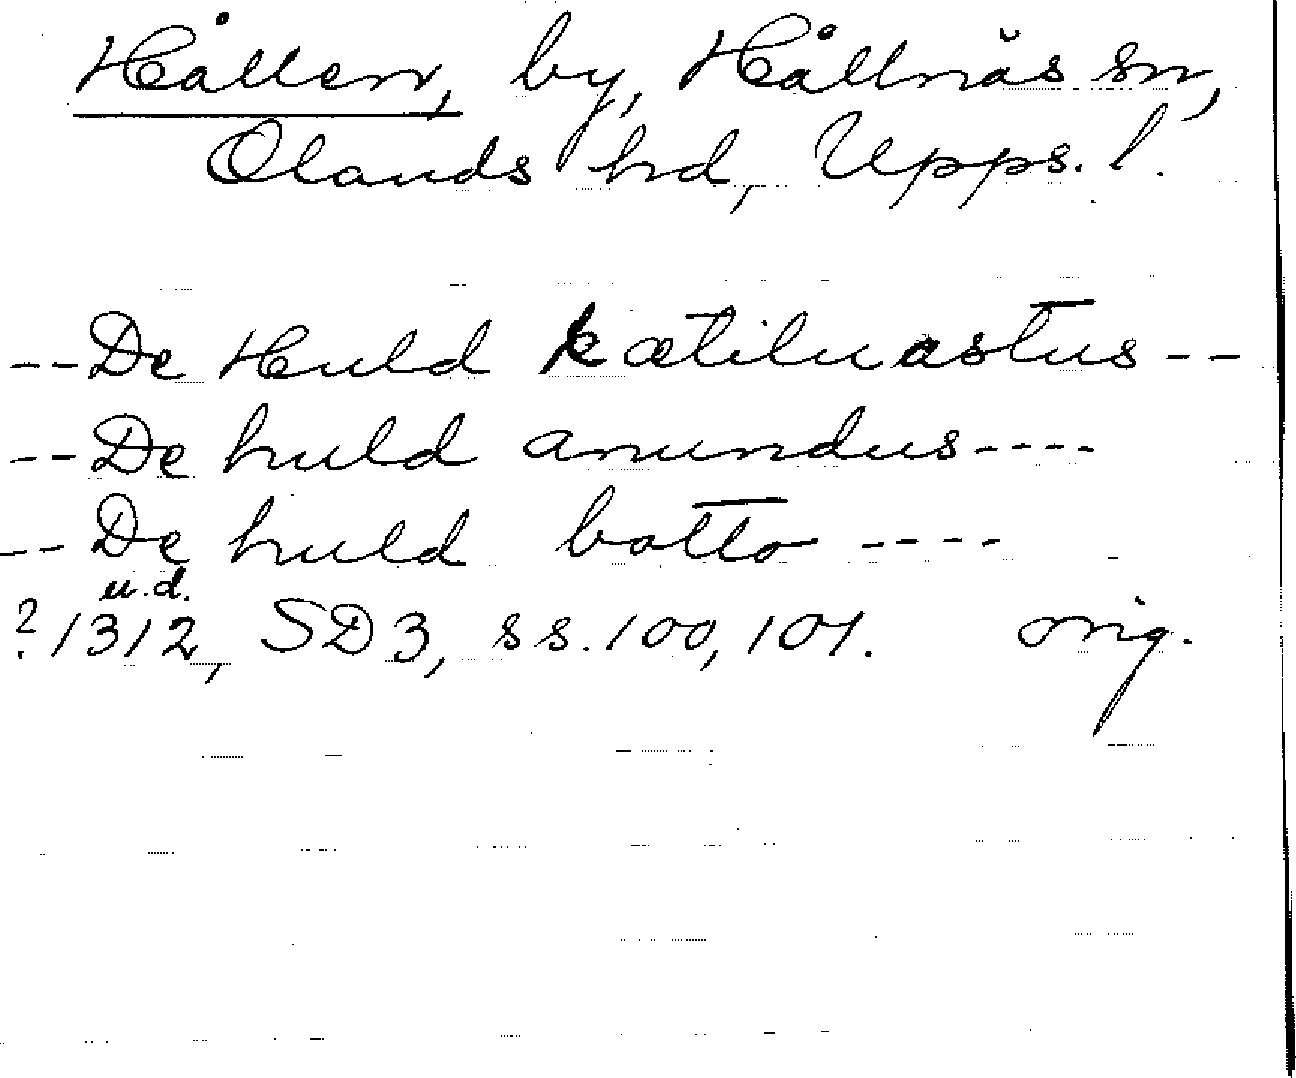 Hållen, by, Hållnäs sn,
Olands hd, Upps. l.
--De Huld kætiluastus--
--De huld anundus----
--De huld botto----
u.d.
?1312, SD3, ss.100,101. orig.